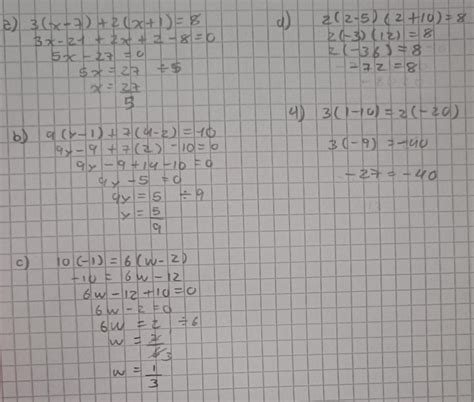 a) 3(x-7)+2(x+1)=8
3x-21+2x+2-8=0
5x-27=0
5x=27 ÷5
x=27/5
b) 9(y-1)+7(4-2)=10
9y-9+7(2)-10=0
9y-9+14-10=0
9y-5=0
9y=5 ÷9
y=5/9
c) 10(-1)=6(w-2)
-10=6w-12
6w-12+10=0
6w-2=0
6w=2 ÷6
w=2/6 3
w=1/3
d) 2(2-5)(2+10)=8
2(-3)(12)=8
2(-36)=8
-72=8
4) 3(1-10)=2(-20)
3(-9)=-40
-27=-40